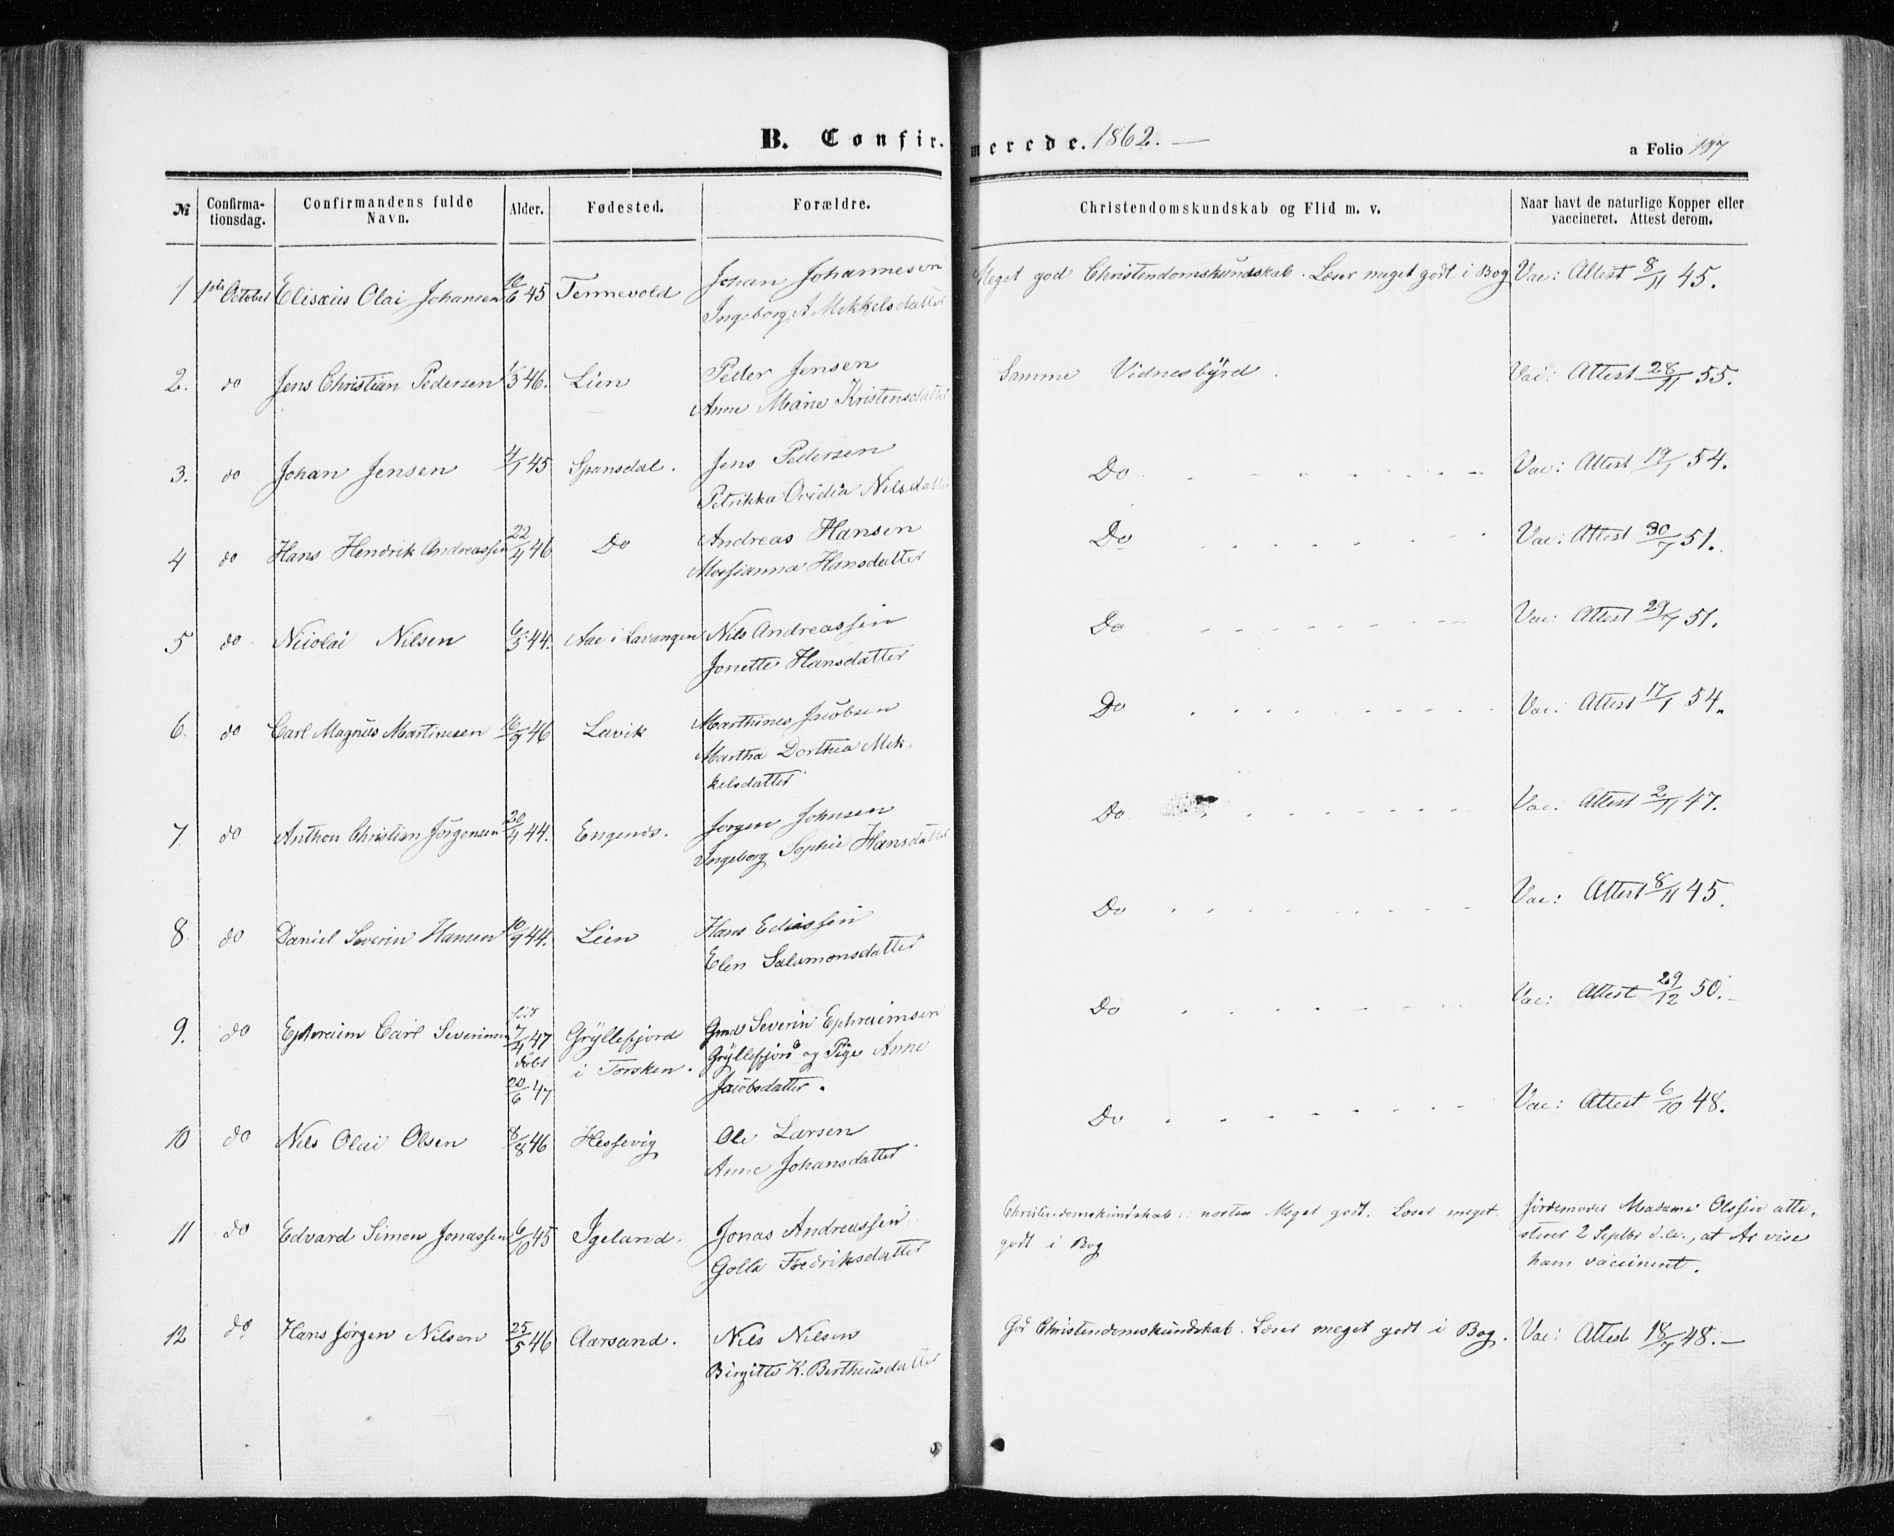 B. Confirmerede. 1862. —
a Folio 197
№ Confirmationsdag. Confirmandens fulde Navn. Alder. Fødested. Forældre. Christendomskundskab og Flid m. v. Naar havt de naturlige Kopper eller vaccineret. Attest derom.
1 October Elisæus Olai Johansen 10/6 45 Tennevold Johan Johannesen Meget god Christendomskundskab. Læser meget godt i Bog Vac: Attest 8/11 45.
Ingeborg A Mikkelsdatter
2. do Jens Christian Pedersen 1/3 46. Lien Peder Jensen Samme Vidnesbyrd. Vac: Attest 28/11 55.
Anne Marie Kristensdatter
3. do Johan Jensen 4/1 45 Spansdal. Jens Pedersen Do Vac: Attest 19/1 54.
Petrikka Ovidia Nilsdatter
4 do Hans Hendrik Andreassen 22/4 46 Do Andreas Hansen Do Vac: Attest 30/7 51.
Massianna Hansdatter
5 do Nicolai Nilsen 6/5 44. Aae i Lavangen Nils Andreassen Do Vac: Attest 29/7 51.
Jonette Hansdatter
6. do Carl Magnus Martinusen 16/9 46 Lavik Marthines Jacobsen Do Vac: Attest 17/1 54.
Martha Dorthea Mik-
kelsdatter
7. do Anthon Christian Jørgensen 20/4 44. Engenes. Jørgen Johnsen Do Vac: Attest 2/11 47.
Ingeborg Sophie Hansdatter
8 do Daniel Severin Hansen 10/9 44. Lien Hans Eliassen Do Vac: Attest 8/11 45.
Elen Salamonsdatter
9. do Ephraim Carl Severinsen 7/4 47 Gryllefjord Gmd Severin Ephraimsen Do Vac: Attest 29/12 50.
døbt i Torsken. Gryllefjord og Pige Anne
20/6 47 Jacobsdatter.
10 do Nils Olai Olsen 8/8 46 Hessevig Ole Larsen Do Vac: Attest 6/10 48.
Anne Johansdatter
11 do Edvard Simon Jonassen 6/10 45 Igeland. Jonas Andreassen Christendomskundskab: næsten Meget godt. Læser meget Jordemoder Madame Olssen atte-
Golla Fredriksdatter godt i Bog sterer 2 Septbr d.a., at have
ham vaccineret.
12 do Hans Jørgen Nilsen 25/5 46 Aarsand. Nils Nilsen God Christendomskundskab. Læser meget godt i Bog. Vac: Attest 18/7 48. —
Birgitte K. Bertheusdatter